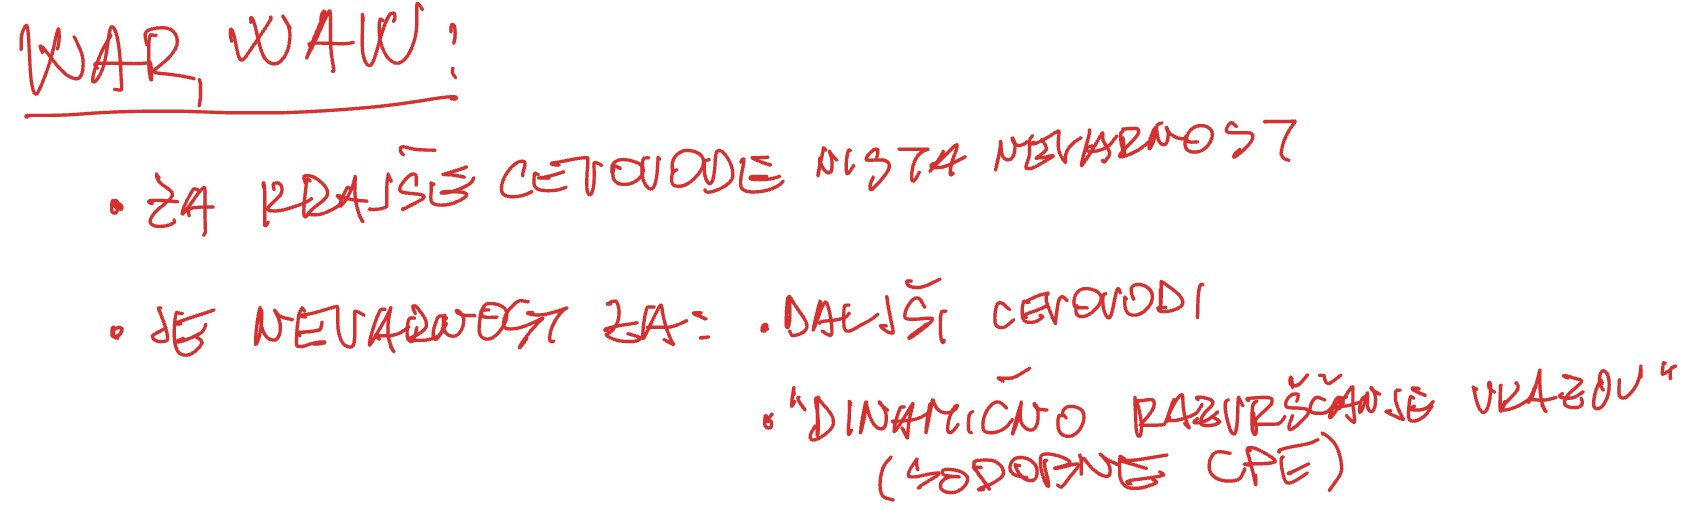 WAR, WAW:
• ZA KRAJŠE CEVOVODE NISTA NEVARNOST
• JE NEVARNOST ZA: • DALJŠI CEVOVODI
• "DINAMIČNO RAZVRŠČANJE UKAZOV"
(SODOBNE CPE)